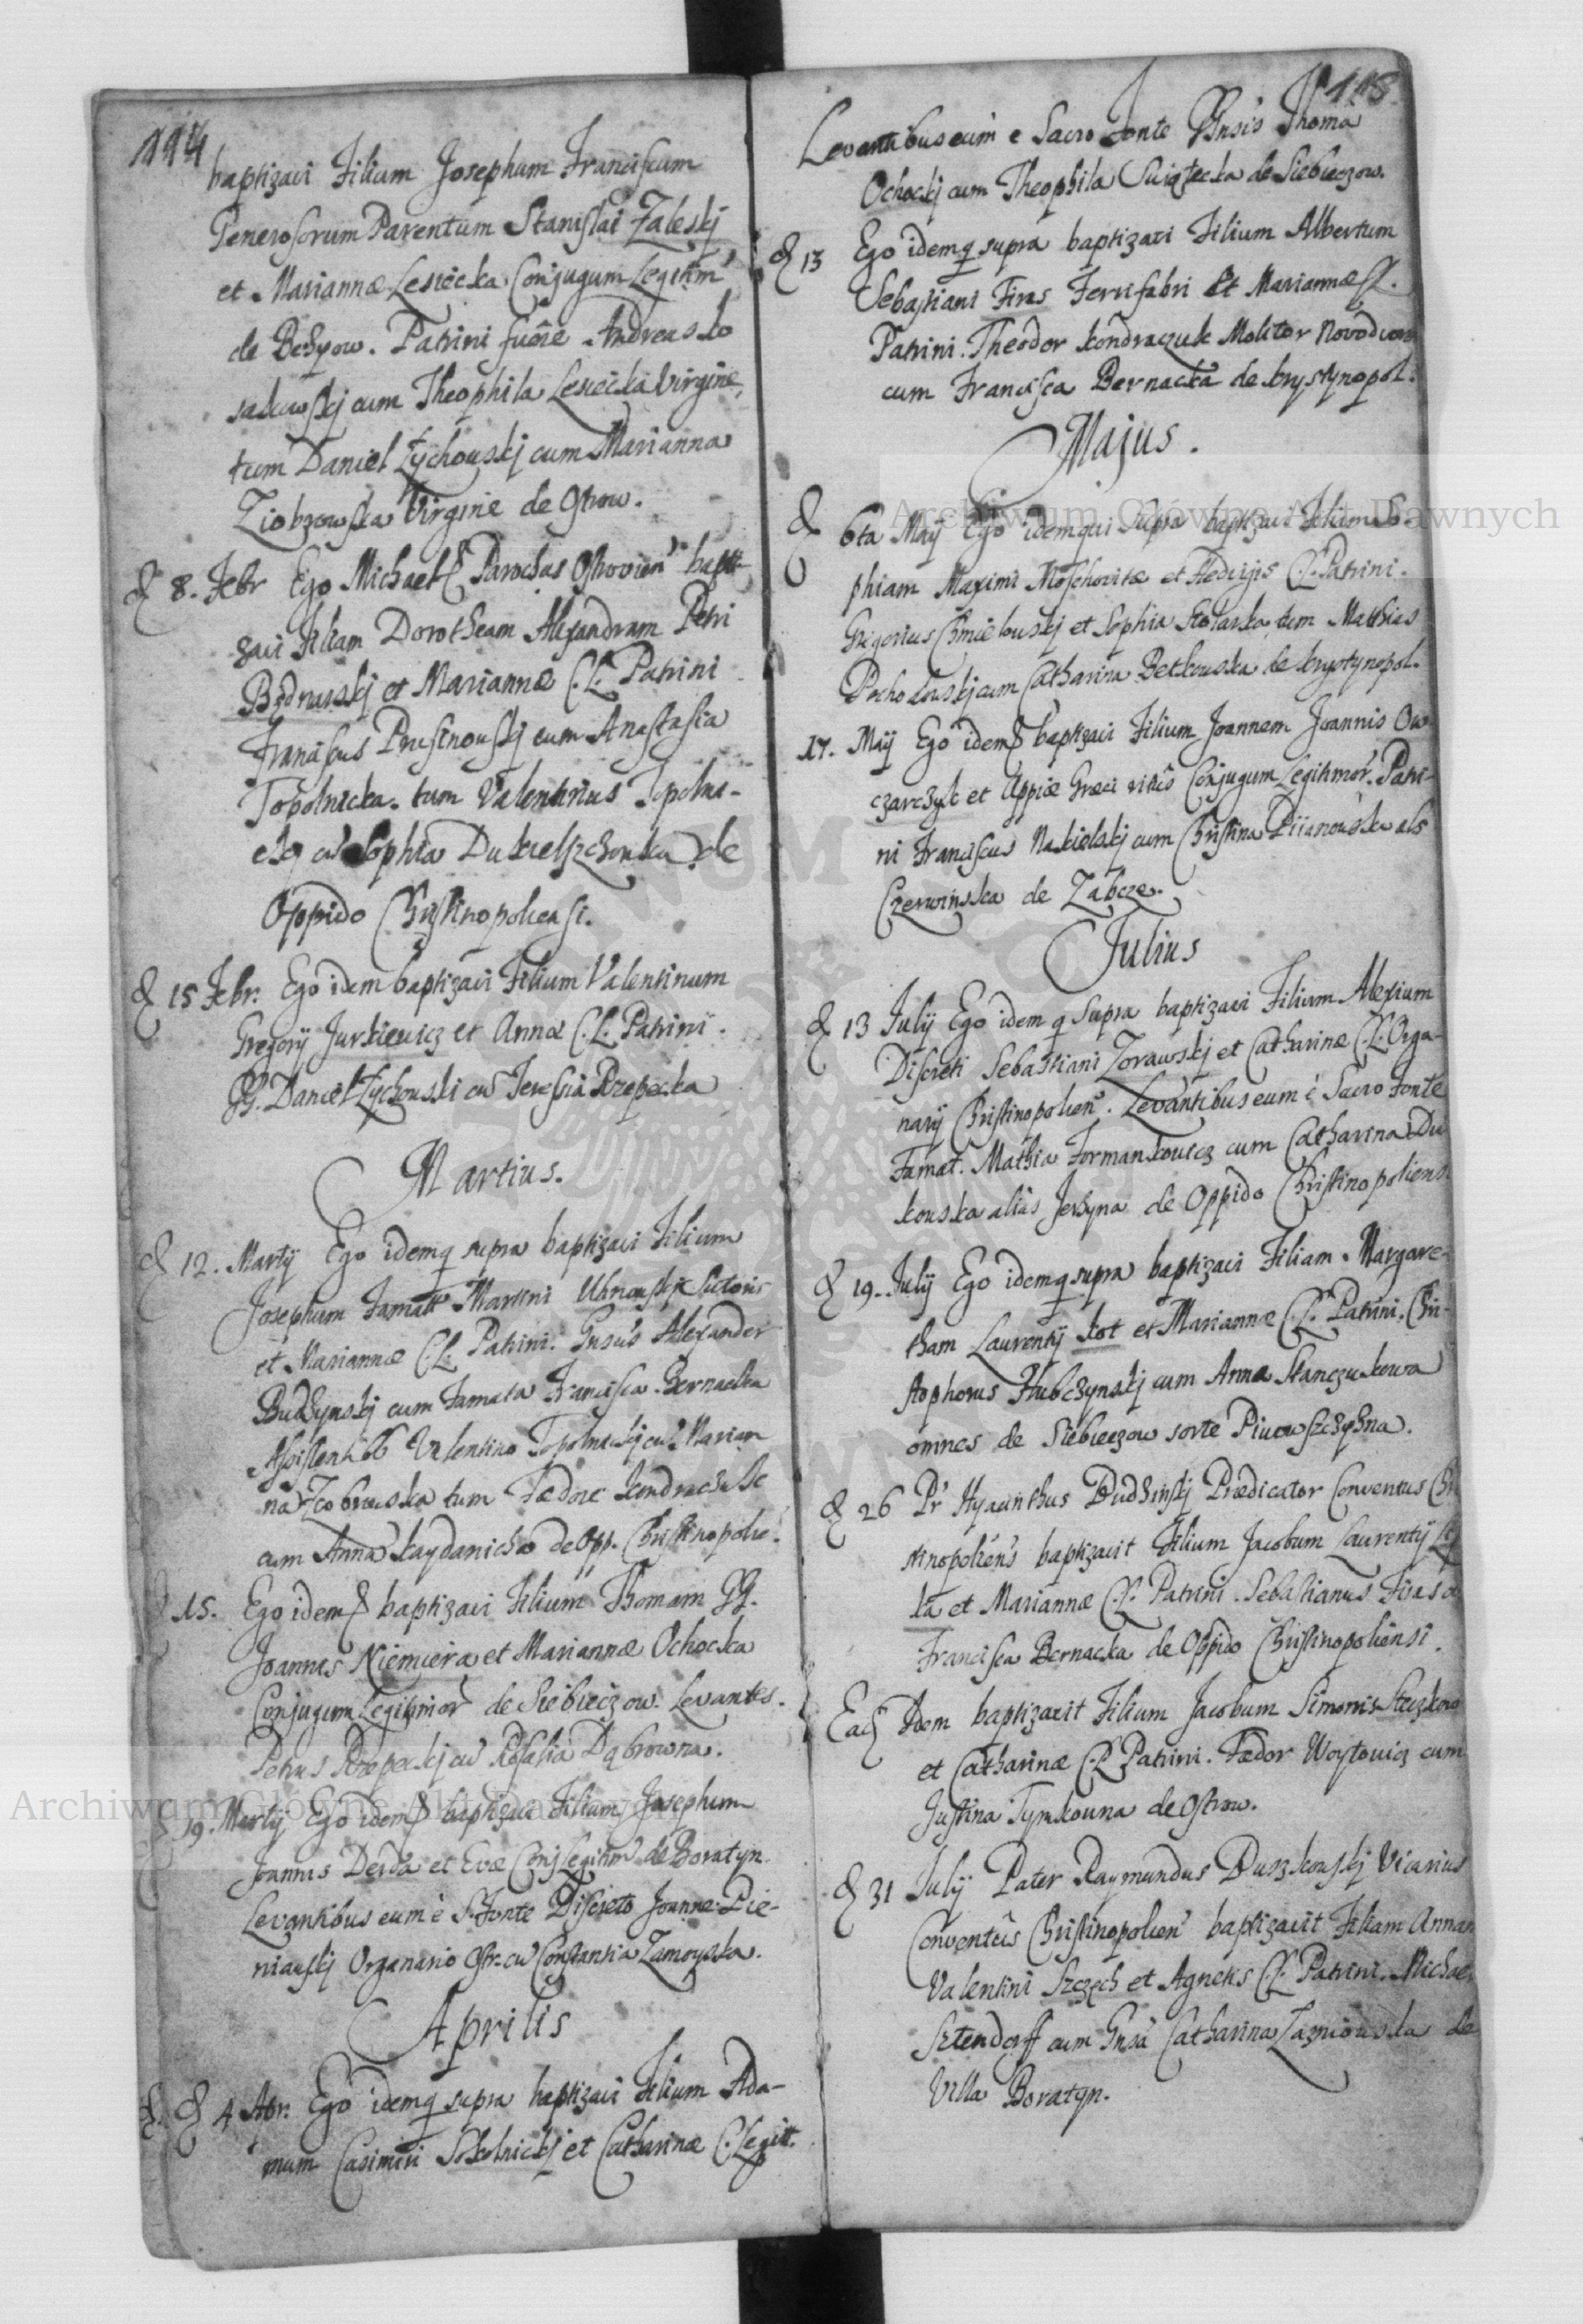 114
baptizavi Filium Josephum Franciscum
Generosorum Parentum Stanislai Zaleskj
et Mariannæ Lesiecka Conjugum Legitim
de Bełzow. Patrini fuere Andreas Ko
sakowskj cum Theophila Lesiecka Virgine,
tum Daniel Zychouskj cum Marianna
Ziobrowska Virgine de Ostrow.
d 8. Febr Ego Michael Parochus Ostrovien bapti
zavi Filiam Dorotheam Alexandram Petri
et Mariannæ C.L. Patrini
Franciscus Prusinouskj cum Anastasia
Topolnicka. tum Valentinus Topolni-
ckj cu Sophia de
Oppido Christinopoliensi.
d 15 Febr. Ego idem baptizavi Filium Valentinum
Gregorij Jurkiewicz et Annæ C.L. Patrini.
GG. Daniel Zychouski cu Teressia Rzepecka
Martius.
d 12. Martij Ego idemq supra baptizavi Filium
Josephum Famatt Martini Uhnouskj Sutoris
et Mariannæ C.L. Patrini. Gnsus Alexander
Budzynskj cum Famata Francisca Bernacka
Assistentib Valentino Topolnickj cu Marian
na Zobrowska tum Fædore Kondraczuk
cum Anna Kaydanicha de Opp. Christinopolie.
15. Ego idem S baptizavi Filium Thomam GG.
Joannis Niemiera et Mariannæ Ochocka
Conjugum Legitimor de Siebieczow. Levantes.
Petrus Rzepeckj cu Rosalia Dąbrowna.
19. Martij Ego idem S baptizavi Filium Josephum
Joannis Derda et Evæ Conj Legitim de Boratyn.
Levantibus eum è S. Fonte Discreto Joanne Pie-
niaskj Organario Ostr. cu Constantia Zamoyska.
Aprilis
d 4 Apr. Ego idemq supra baptizavi Filium Ada-
mum Casimiri Sokolnickj et Catharinæ C. Legitt.
115
Levantibus eum e Sacro Fonte Gnsis Thoma
Ochockj cum Theophila Swiątecka de Siebieczow.
d 13 Ego idemq supra baptizavi Filium Albertum
Sebastiani Firas Ferrifabri et Mariannæ CL.
Patrini. Theodor Kondraczuk Molitor Novodwor
cum Francisca Bernacka de Krystynopol.
Majus.
d 6ta Maij Ego idem qui Supra baptizavi Filiam So-
phiam Maximi Moschovitæ et Hedvigis C.L. Patrini.
Gregorius Chmielouskj et Sophia Stolarka tum Matthias
Pochodouskj cum Catharina Betkouska de Krystynopol.
17. Maij Ego idem S baptizavi Filium Joannem Joannis Ow
czarczyk et Appiæ Græci ritus Conjugum Legitimor. Patri-
ni Franciscus Nakielskj cum Christina Piianouska als
Czerwinska de Zabcze.
Julius
d 13 Julij Ego idem q Supra baptizavi Filium Alexium
Discreti Sebastiani Zorawskj et Catharinæ C.L. Orga-
narij Christinopolien. Levantibus eum è Sacro Fonte
Famat. Mathia Formankowicz cum Catharina Du
kouska alias Jerzyna de Oppido Christinopoliens.
d 19. Julij Ego idemq supra baptizavi Filiam Margare-
tham Laurentij Kot et Mariannæ C.L. Patrini. Chri-
stophorus Hubczynskj cum Anna Stanczukowa
omnes de Siebieczow sorte Piwowszczyzna.
d 26 Pr Hyacinthus Budzinskj Prædicator Conventus Chri
stinopoliens baptizavit Filium Jacobum Laurentij
ła et Mariannæ C.L. Patrini. Sebastianus Firas c
Francisca Bernacka de Oppido Christinopoliensi.
Ead Idem baptizavit Filium Jacobum Simonis
et Catharinæ C.L. Patrini. Fædor Woytowicz cum
Justina Tymkouna de Ostrow.
d 31 Julij Pater Raymundus Duszkouskj Vicarius
Conventus Christinopolien baptizavit Filiam Annam
Valentini Szczęch et Agnetis C.L. Patrini. Michae
Sztendorff cum Gnsa Catharina de
Villa Boratyn.
Archiwum Główne Akt Dawnych
Archiwum Główne Akt Dawnych